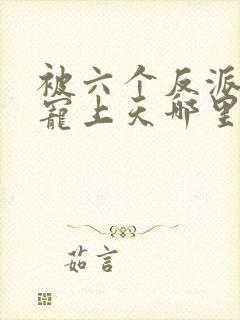 被六个反派
宠上天哪里
茹言